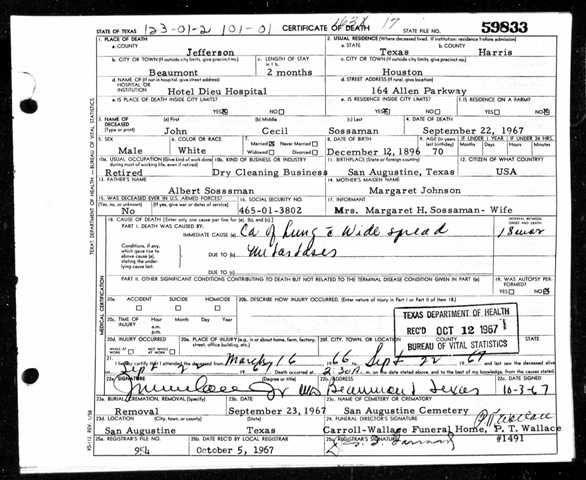 STATE OF TEXAS 123-01-2 101-01 CERTIFICATE OF DEATH 17 STATE FILE NO. 59833
1. PLACE OF DEATH 2. USUAL RESIDENCE (Where deceased lived. If institution: residence before admission)
a. COUNTY Jefferson a. STATE Texas b. COUNTY Harris
b. CITY OR TOWN (If outside city limits, give precinct no.) Beaumont c. LENGTH OF STAY in 1 b. 2 months c. CITY OR TOWN (If outside city limits, give precinct no.) Houston
d. NAME OF (If not in hospital, give street address) HOSPITAL OR INSTITUTION Hotel Dieu Hospital d. STREET ADDRESS (If rural, give location) 164 Allen Parkway
e. IS PLACE OF DEATH INSIDE CITY LIMITS? YES NO e. IS RESIDENCE INSIDE CITY LIMITS? YES NO f. IS RESIDENCE ON A FARM? YES NO
3. NAME OF DECEASED (Type or print) (a) First John (b) Middle Cecil (c) Last Sossaman 4. DATE OF DEATH September 22, 1967
5. SEX Male 6. COLOR OR RACE White 7. Married Never Married Widowed Divorced 8. DATE OF BIRTH December 12, 1896 9. AGE (In years last birthday) 70 IF UNDER 1 YEAR Months Days IF UNDER 24 HRS. Hours Min.
10a. USUAL OCCUPATION (Give kind of work done during most of working life, even if retired) Retired 10b. KIND OF BUSINESS OR INDUSTRY Dry Cleaning Business 11. BIRTHPLACE (State or foreign country) San Augustine, Texas 12. CITIZEN OF WHAT COUNTRY? USA
13. FATHER'S NAME Albert Sosssman 14. MOTHER'S MAIDEN NAME Margaret Johnson
15. WAS DECEASED EVER IN U.S. ARMED FORCES? (Yes, no, or unknown) (If yes, give war or dates of service) No 16. SOCIAL SECURITY NO. 465-01-3802 17. INFORMANT Mrs. Margaret H. Sossaman- Wife
18. CAUSE OF DEATH (Enter only one cause per line for (a), (b), and (c).) INTERVAL BETWEEN ONSET AND DEATH
PART I. DEATH WAS CAUSED BY: IMMEDIATE CAUSE (a) Ca of Lung c Wide spread 18 mos
Conditions, if any, which gave rise to above cause (a), stating the underlying cause last. DUE TO (b) Metastases
DUE TO (c)
PART II. OTHER SIGNIFICANT CONDITIONS CONTRIBUTING TO DEATH BUT NOT RELATED TO THE TERMINAL DISEASE CONDITION GIVEN IN PART I(a) 19. WAS AUTOPSY PERFORMED? YES NO
20a. ACCIDENT SUICIDE HOMICIDE 20b. DESCRIBE HOW INJURY OCCURRED. (Enter nature of injury in Part I or Part II of item 18.)
20c. TIME OF INJURY Hour Month Day Year a.m. p.m.
TEXAS DEPARTMENT OF HEALTH
REC'D OCT 12 1967
BUREAU OF VITAL STATISTICS
20d. INJURY OCCURRED WHILE AT WORK NOT WHILE AT WORK 20e. PLACE OF INJURY (e.g., in or about home, farm, factory, street, office building, etc.) 20f. CITY, TOWN, OR LOCATION COUNTY STATE
21. I hereby certify that I attended the deceased from March 16 66 Sept 22 67 and last saw the deceased alive
Sept 22 67 Death occurred at 2:30 A. m. on the date stated above, and to the best of my knowledge, from the causes stated.
22a. SIGNATURE (Degree or title) MD 22b. ADDRESS Beaumont Texas 22c. DATE SIGNED 10-3-67
23a. BURIAL, CREMATION, REMOVAL (Specify) Removal 23b. DATE September 23, 1967 23c. NAME OF CEMETERY OR CREMATORY San Augustine Cemetery
23d. LOCATION (City, town, or county) (State) San Augustine Texas 24. FUNERAL DIRECTOR'S SIGNATURE Carroll-Wallace Funeral Home, P. T. Wallace
#1491
25a. REGISTRAR'S FILE NO. 954 25b. DATE REC'D BY LOCAL REGISTRAR October 5, 1967 25c. REGISTRAR'S SIGNATURE
TEXAS DEPARTMENT OF HEALTH — BUREAU OF VITAL STATISTICS
MEDICAL CERTIFICATION